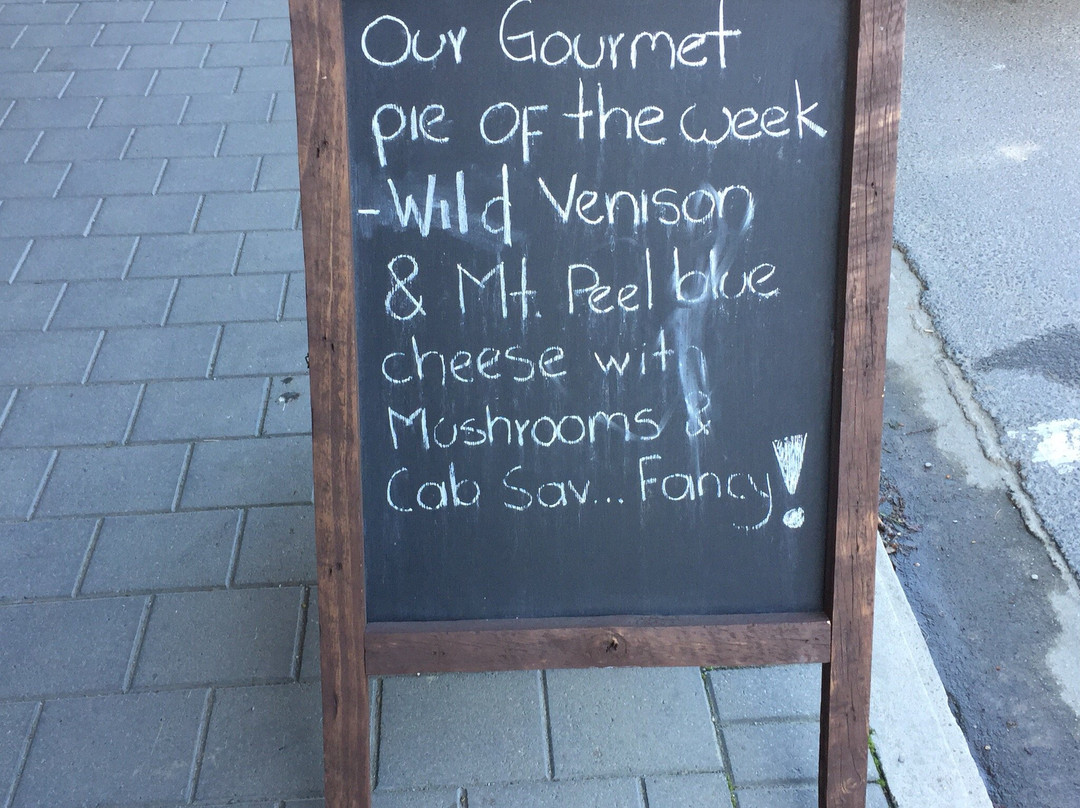 Our Gourmet
pie of the week
- Wild Venison
& Mt. Peel blue
cheese with
Mushrooms &
Cab Sav... Fancy!